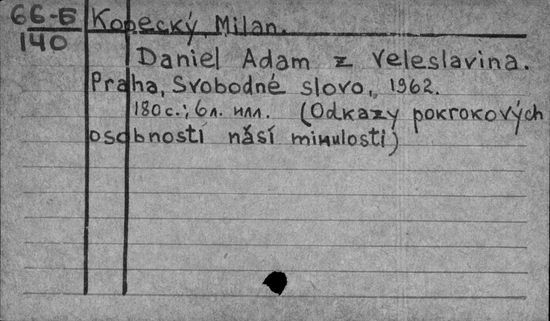 66-Б
140
Kopecký, Milan.
Daniel Adam z Veleslavina.
Praha, Svobodné slovo, 1962.
180 с.; 6 л. илл. (Odkazy pokrokových
osobností náší minulosti)